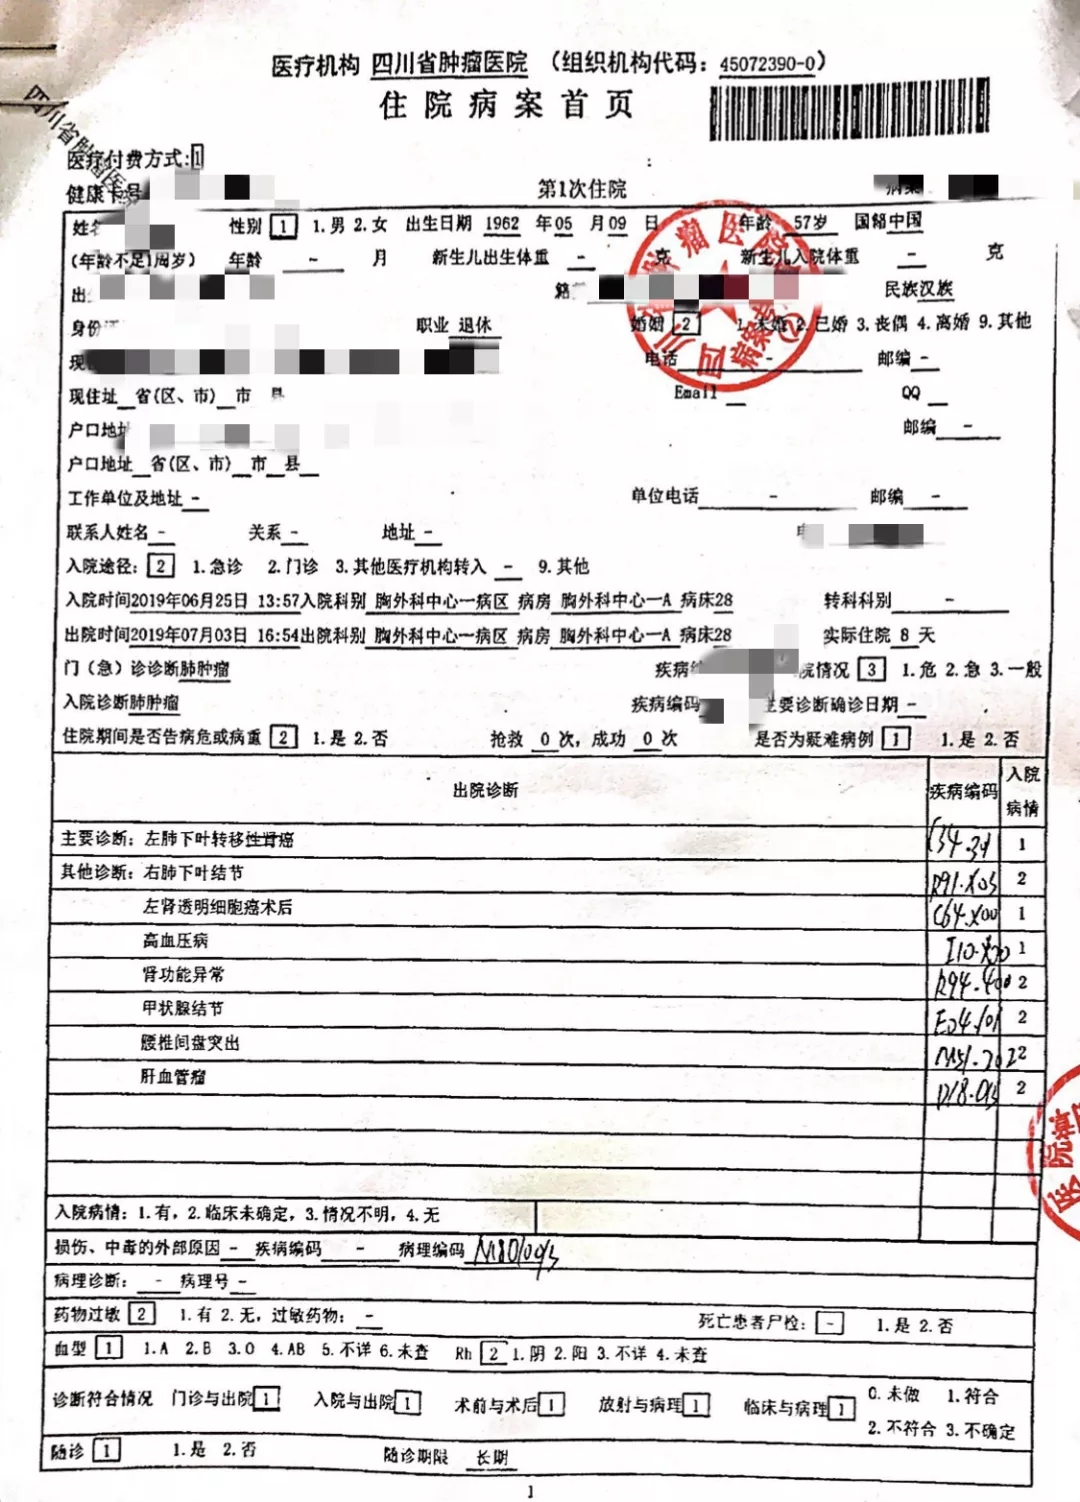 医疗机构 四川省肿瘤医院 (组织机构代码: 45072390-0)
住院病案首页
四川省肿瘤医
医疗付费方式:1
健康卡号 第1次住院 病案
姓名 性别 1 1.男 2.女 出生日期 1962 年05 月09 日 年龄 57岁 国籍中国
(年龄不足1周岁) 年龄 - 月 新生儿出生体重 - 克 新生儿入院体重 - 克
出 籍 民族汉族
身份证 职业 退休 婚姻 2 1.未婚 2.已婚 3.丧偶 4.离婚 9.其他
现 电话 - 邮编 -
现住址 省(区、市) 市 县 Email QQ
户口地址 邮编 -
户口地址 省(区、市) 市 县
工作单位及地址 - 单位电话 - 邮编 -
联系人姓名 - 关系 - 地址 -
入院途径: 2 1.急诊 2.门诊 3.其他医疗机构转入 - 9.其他
入院时间2019年06月25日 13:57入院科别 胸外科中心一病区 病房 胸外科中心一A 病床28 转科科别 -
出院时间2019年07月03日 16:54出院科别 胸外科中心一病区 病房 胸外科中心一A 病床28 实际住院 8 天
门(急)诊诊断肺肿瘤 疾病编 院情况 3 1.危 2.急 3.一般
入院诊断肺肿瘤 疾病编码 主要诊断确诊日期 -
住院期间是否告病危或病重 2 1.是 2.否 抢救 0 次,成功 0 次 是否为疑难病例 1 1.是 2.否
出院诊断 疾病编码 入院病情
主要诊断: 左肺下叶转移性肾癌 1
其他诊断: 右肺下叶结节 R91.X03 2
左肾透明细胞癌术后 C64.X00 1
高血压病 I10.X00 1
肾功能异常 R94.400 2
甲状腺结节 E04.101 2
腰椎间盘突出 M51.202 2
肝血管瘤 D18.013 2
入院病情: 1.有, 2.临床未确定, 3.情况不明, 4.无
损伤、中毒的外部原因 - 疾病编码 - 病理编码 M80100/3
病理诊断: - 病理号 -
药物过敏 2 1.有 2.无, 过敏药物: - 死亡患者尸检: - 1.是 2.否
血型 1 1.A 2.B 3.O 4.AB 5.不详 6.未查 Rh 2 1.阴 2.阳 3.不详 4.未查
诊断符合情况 门诊与出院 1 入院与出院 1 术前与术后 1 放射与病理 1 临床与病理 1 0.未做 1.符合
2.不符合 3.不确定
随诊 1 1.是 2.否 随诊期限 长期
1